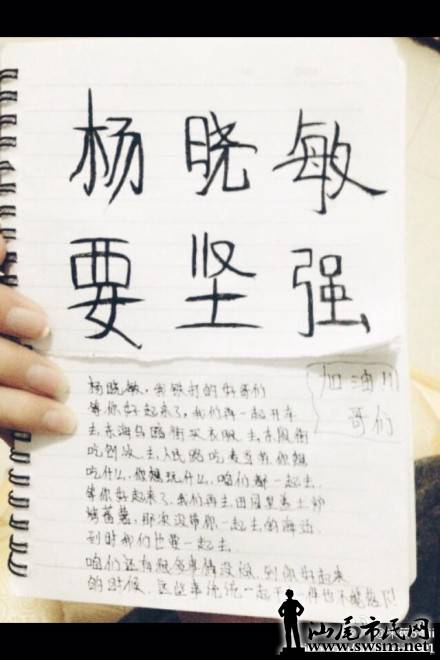 杨晓敏
要坚强
加油！！
哥们
杨晓敏，我铁打的好哥们
等你好起来了，我们再一起开车
去东海马路街买衣服，去东股街
吃刨冰，去人民路吃麦当劳，你想
吃什么，你想玩什么，咱们都一起去
等你好起来了，我们再去田园里烧土炉
烤番薯，那次没带你一起去的海边
到时我们也要一起去
咱们还有很多事情没做，别你好起来
的时候，这些事统统一起干，一件也不能落下！
汕尾市民网
www.swsm.net